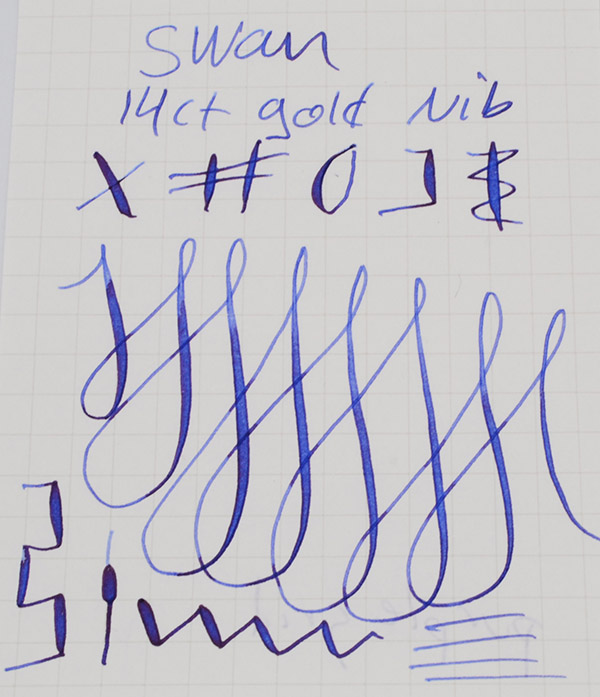 Swan
14ct gold Nib